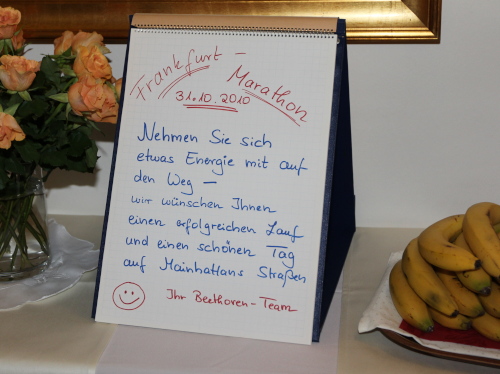 Frankfurt -
Marathon
31.10.2010
Nehmen Sie sich
etwas Energie mit auf
den Weg -
wir wünschen Ihnen
einen erfolgreichen Lauf
und einen schönen Tag
auf Mainhattans Straßen
Ihr Beethoven-Team